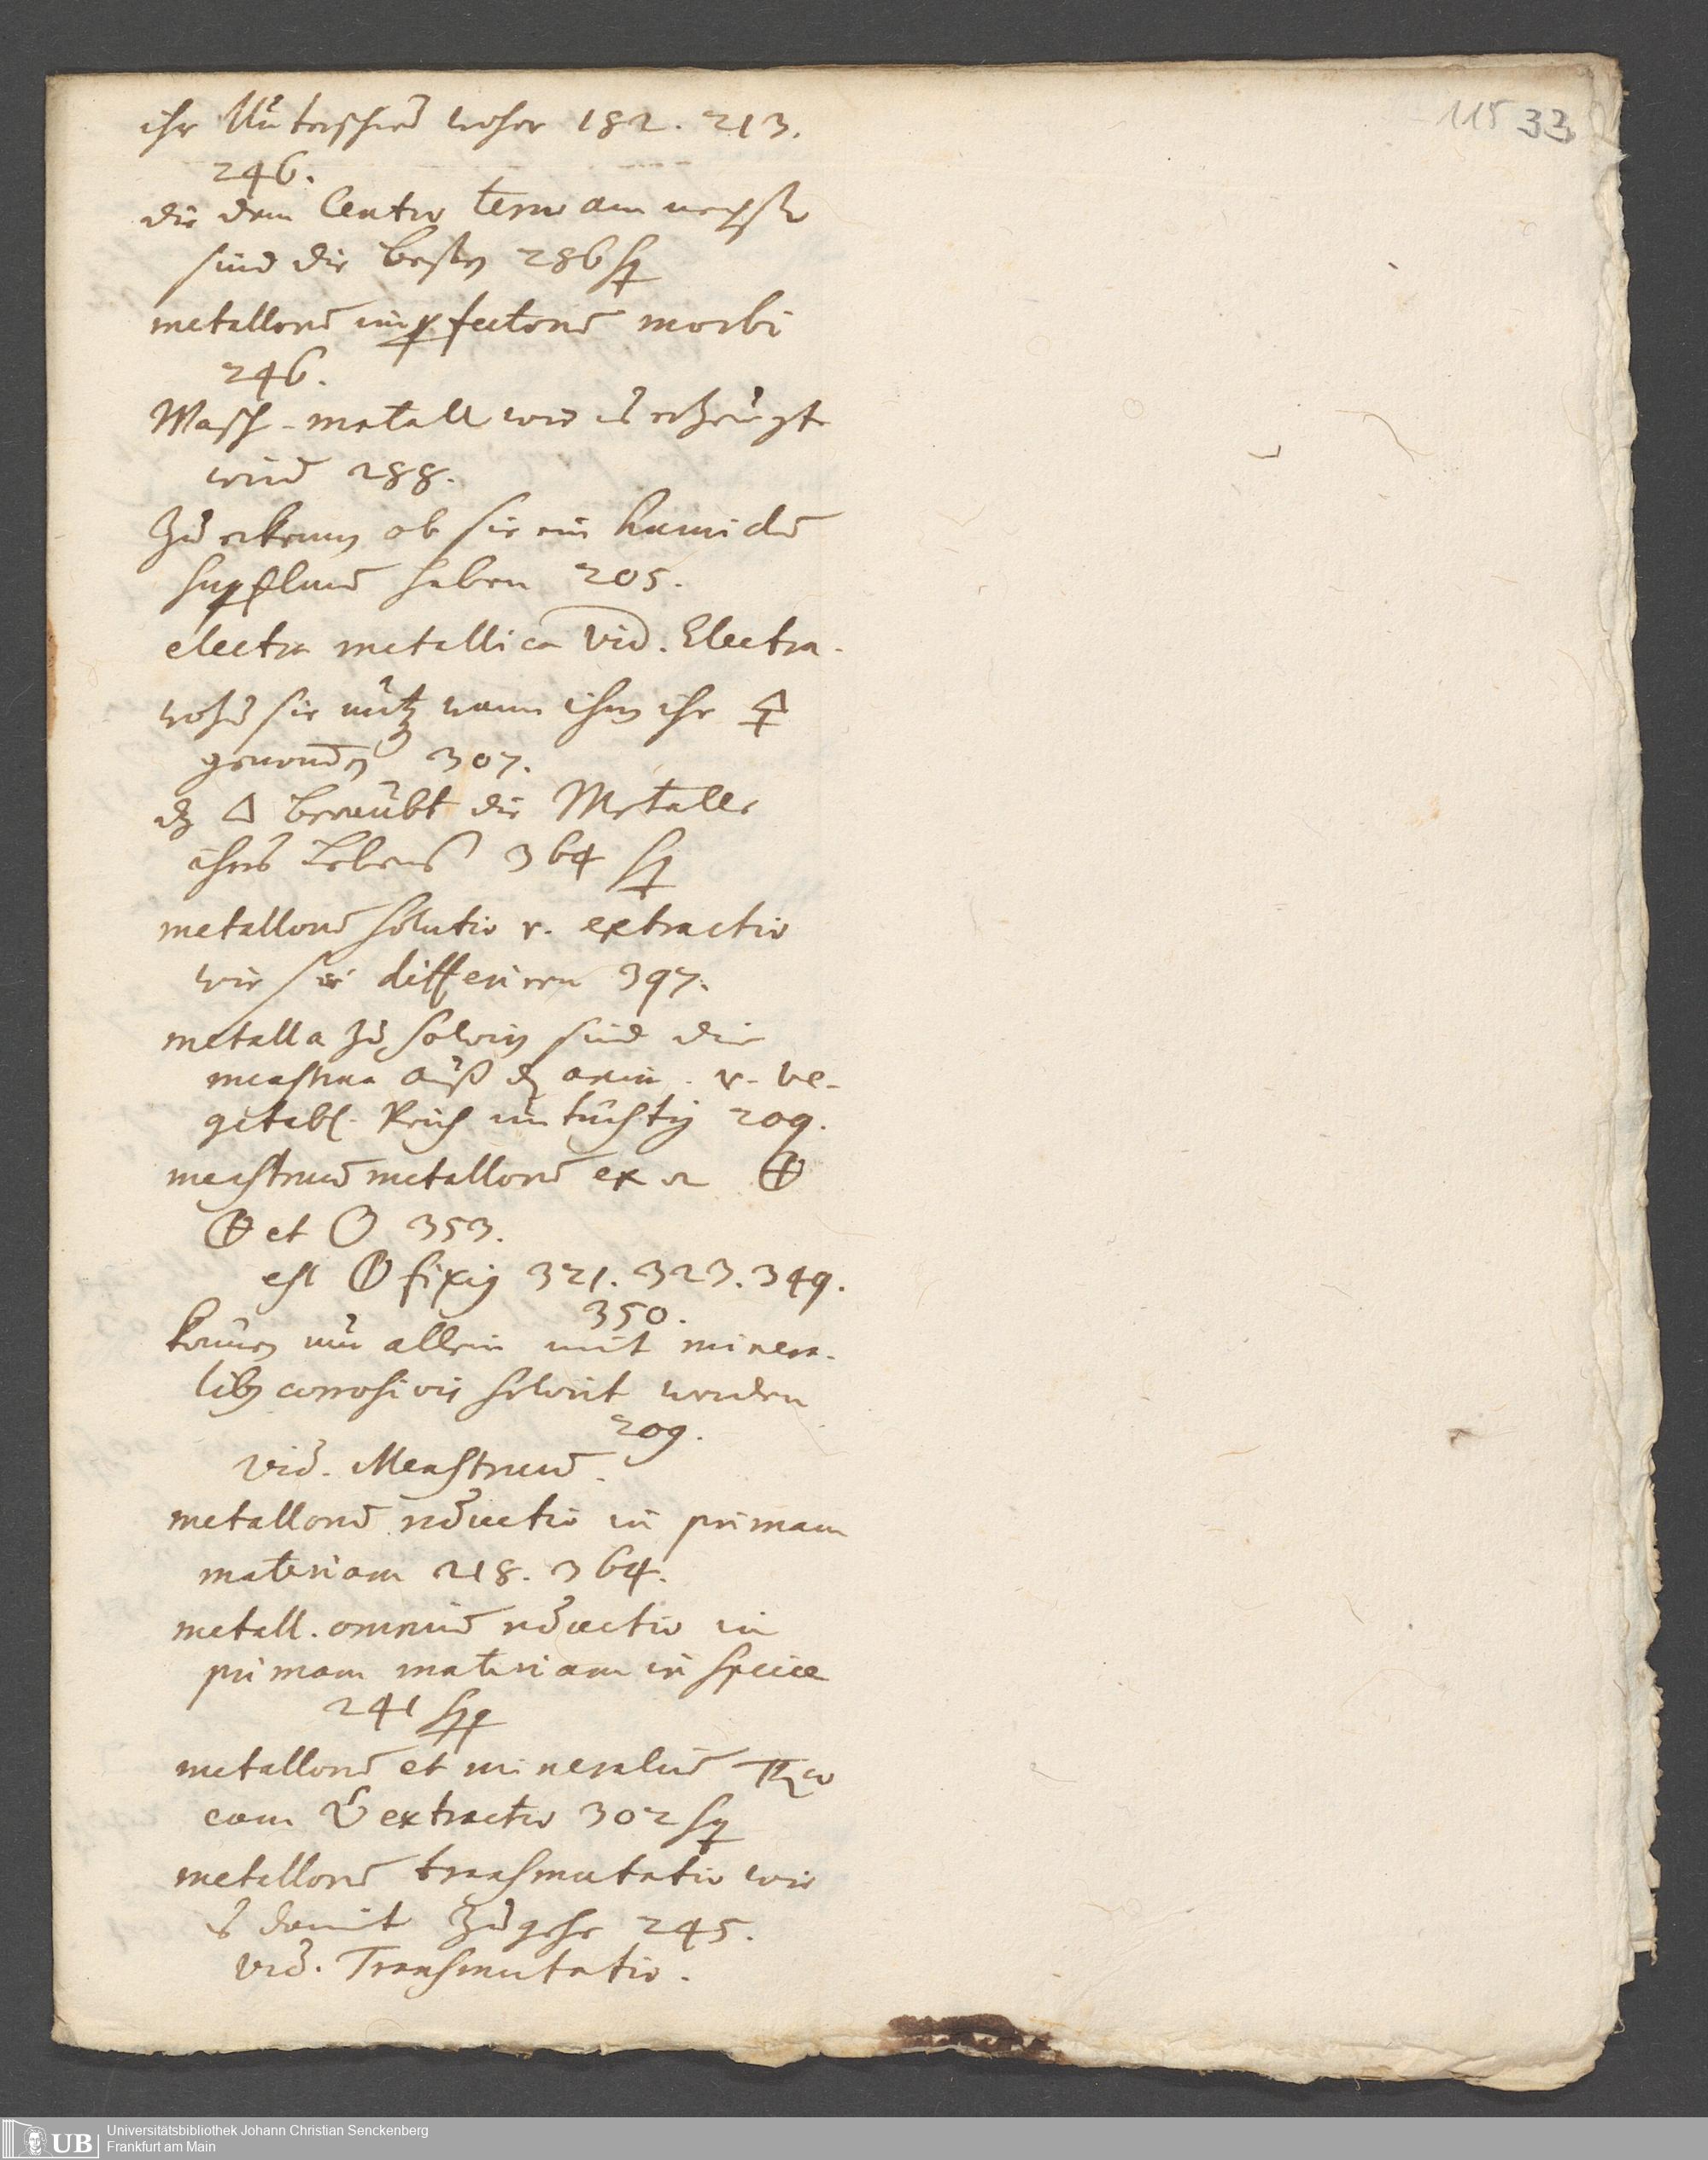 115 33
ihr Unterschied woher 182. 213.
246.
die dem Centro terræ am nechste
sind die besten 286 sq
metallorū imꝑfectorū morbi
246.
Wasch-metall wie es erzeugt
wird 288.
Zu erkennen ob sie ein humidū
suꝑfluū haben 205.
electra metallica vid. Electra.
wozu sie nütz wann ihnen ihr 🜍
genommen 307.
dz 🜂 beraubt die Metalle
ihres Lebens 364 sq
metallorū solutio v. extractio
wie sie differiren 397.
metalla zu solviren sind die
menstrua auß dem anim. v. ve-
getabl. Reich untüchtig 209.
menstruū metallorū ex
et 353.
est fixum 321. 323. 349.
350.
können nur allein mit minera-
libus corrosivis solvirt werden
209.
vid. Menstruū.
metallorū reductio in primam
materiam 218. 364.
metall. omniū reductio in
primam materiam in specie
241 sqq
metallorū et mineraliū
cum extractio 302 sq
metallorū transmutatio wie
es damit zugehe 245.
vid. Transmutatio.
UB
Universitätsbibliothek Johann Christian Senckenberg
Frankfurt am Main